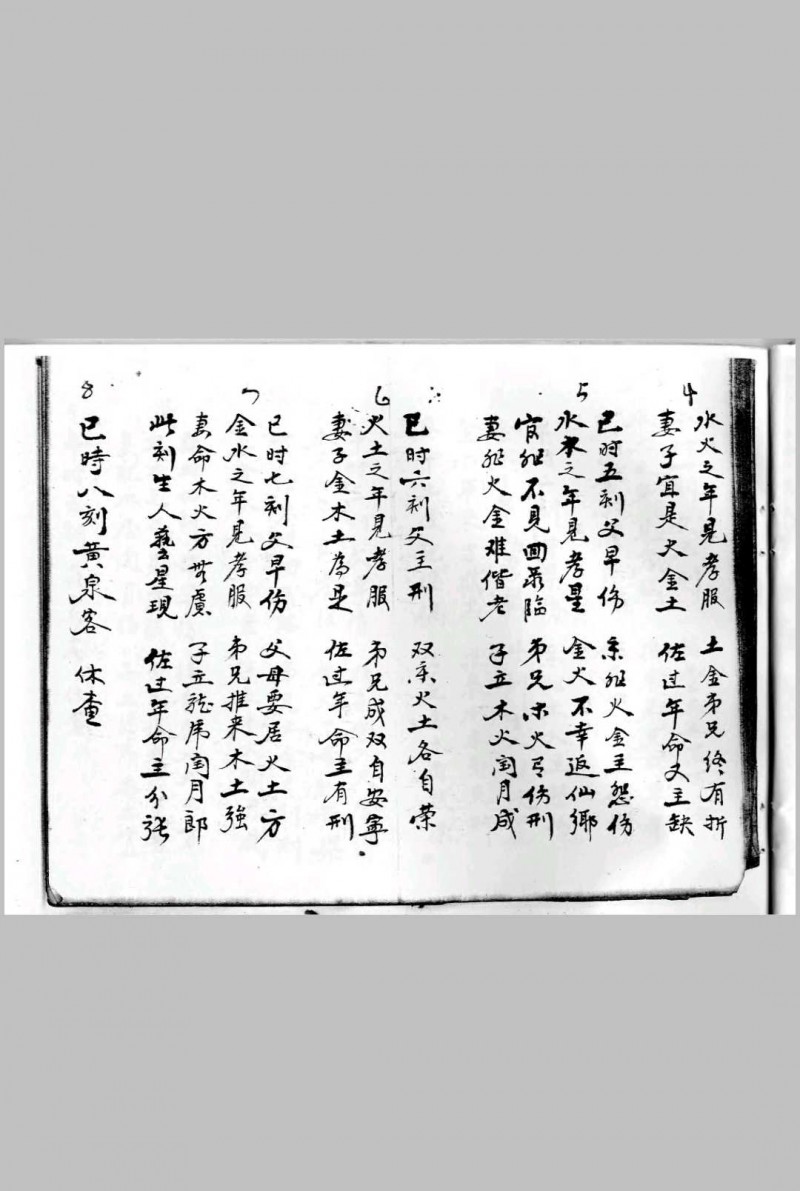 水火之年見孝服 土金弟兄終有折
4
妻子宜是火金土 佐过年命又主缺
巳时五刻父早伤 亲 火金主怨伤
5
水木之年見孝星 金火不幸返仙鄉
官 不見回 臨 弟兄 火 伤刑
妻 火金难偕老 子立木火闰月成
巳时六刻父主刑 双亲火土各自荣
6
火土之年見孝服 弟兄成双自安寧
妻子金木土為是 佐过年命主有刑
巳时七刻父早伤 父母要居火土方
7
金水之年見孝服 弟兄推来木土強
妻命木火方無慮 子立龍虎闰月郎
此刻生人藝星現 佐过年命主分張
8
巳時八刻黄泉客 休查